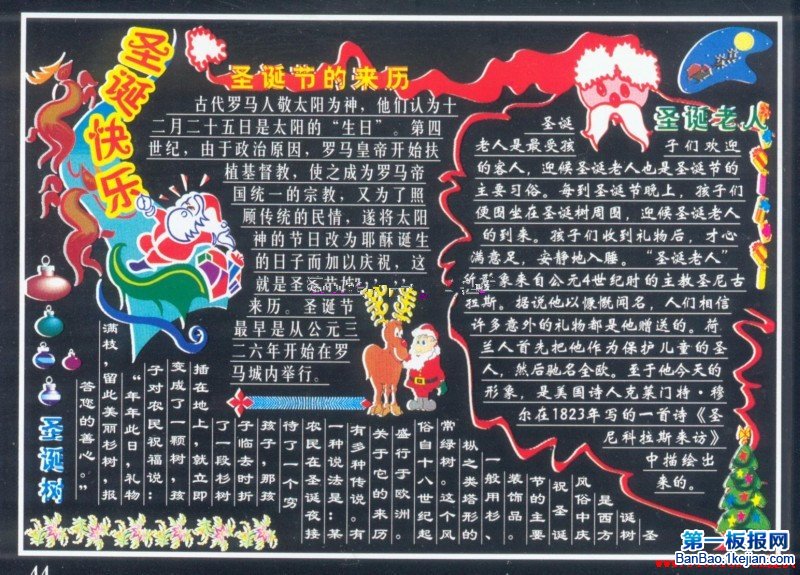 圣诞快乐
圣诞节的来历
古代罗马人敬太阳为神，他们认为十
二月二十五日是太阳的“生日”。第四
世纪，由于政治原因，罗马皇帝开始扶
植基督教，使之成为罗马帝
国统一的宗教，又为了照
顾传统的民情，遂将太阳
神的节日改为耶酥诞生
的日子而加以庆祝，这
就是圣诞节的
来历。圣诞节
最早是从公元三
二六年开始在罗
马城内举行。
圣诞老人
圣诞
老人是最受孩子们欢迎
的客人，迎候圣诞老人也是圣诞节的
主要习俗。每到圣诞节晚上，孩子们
便围坐在圣诞树周围，迎候圣诞老人
的到来。孩子们收到礼物后，才心
满意足，安静地入睡。“圣诞老人”
的形象来自公元4世纪时的主教圣尼古
拉斯。据说他以慷慨闻名，人们相信
许多意外的礼物都是他赠送的。荷
兰人首先把他作为保护儿童的圣
人，然后驰名全欧。至于他今天的
形象，是美国诗人克莱门特·穆
尔在1823年写的一首诗《圣
尼科拉斯来访》
中描绘出
来的。
圣诞树
圣
诞树
是西方
风俗中庆
祝圣诞
节的主要
装饰品。
一般用杉、
枞之类塔形的
常绿树。这个风
俗自十八世纪起
盛行于欧洲。
关于它的来历
有多种传说。有
一种说法是：某
农民在圣诞夜接
待了一个穷
孩子，那孩
子临去时折
了一段杉树
插在地上，就立即
变成了一颗树，孩
子对农民祝福说：
“年年此日，礼物
满枝，留此美丽杉树，报
答您的善心。”
44
第一板报网
BanBao.1kejian.com